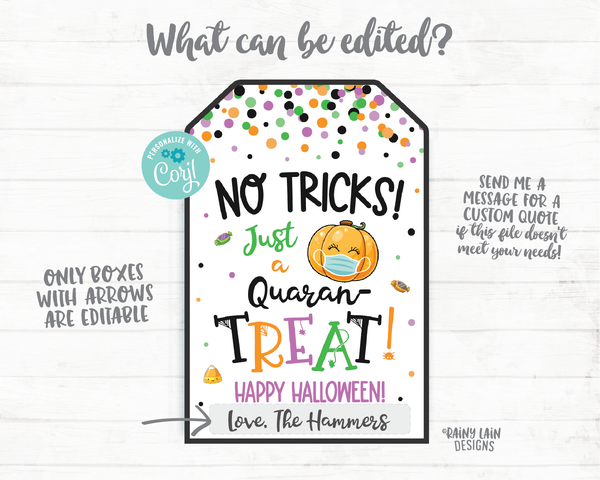 What can be edited?
PERSONALIZE WITH
Corjl
NO TRICKS!
Just
a
Quaran-
TREAT!
HAPPY HALLOWEEN!
Love, The Hammers
ONLY BOXES
WITH ARROWS
ARE EDITABLE
SEND ME A
MESSAGE FOR A
CUSTOM QUOTE
if this file doesn't
meet your needs!
©RAINY LAIN
DESIGNS